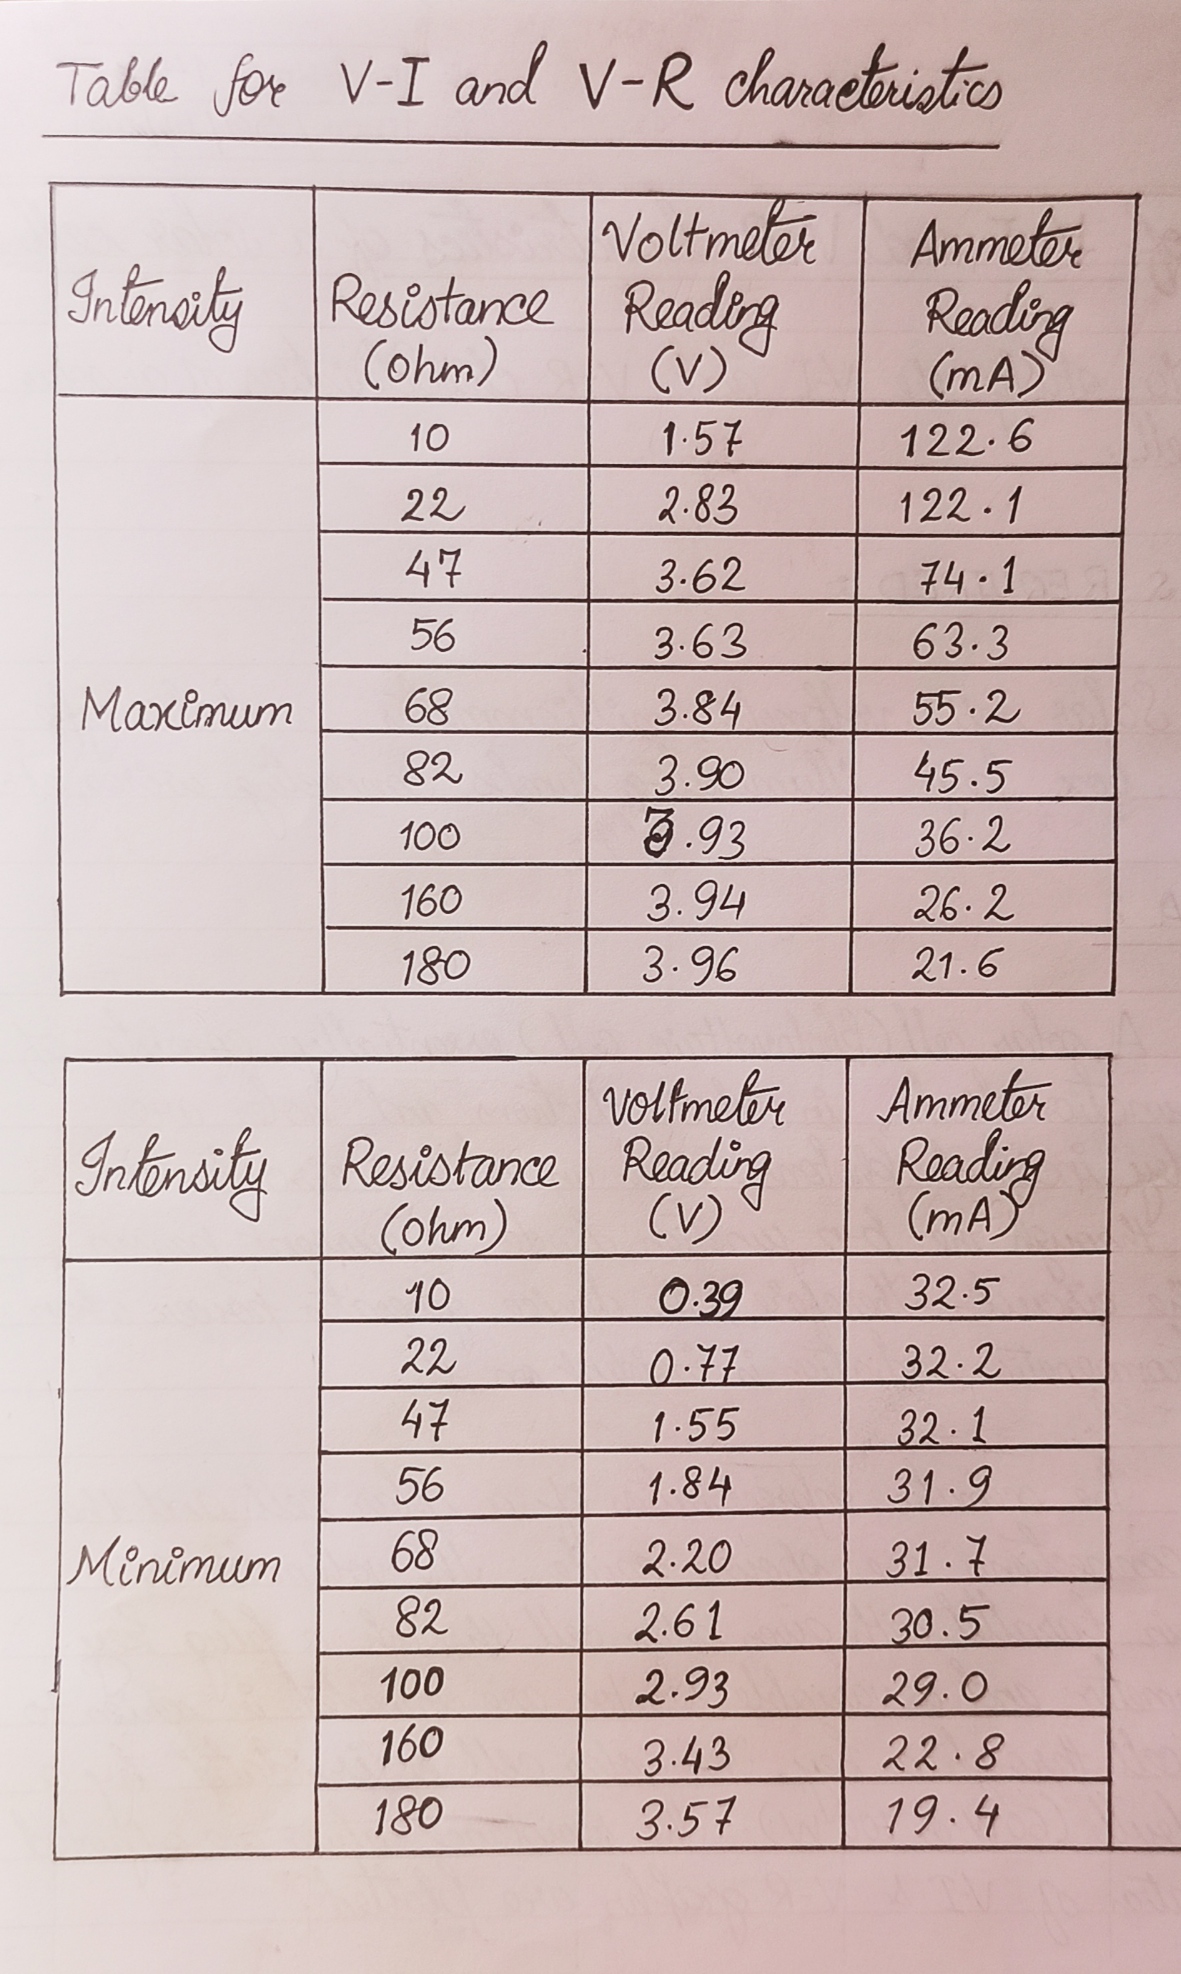 Table for V-I and V-R characteristics
Intensity Resistance (ohm) Voltmeter Reading (V) Ammeter Reading (mA)
Maximum
10 1.57 122.6
22 2.83 122.1
47 3.62 74.1
56 3.63 63.3
68 3.84 55.2
82 3.90 45.5
100 3.93 36.2
160 3.94 26.2
180 3.96 21.6
Intensity Resistance (ohm) Voltmeter Reading (V) Ammeter Reading (mA)
Minimum
10 0.39 32.5
22 0.77 32.2
47 1.55 32.1
56 1.84 31.9
68 2.20 31.7
82 2.61 30.5
100 2.93 29.0
160 3.43 22.8
180 3.57 19.4